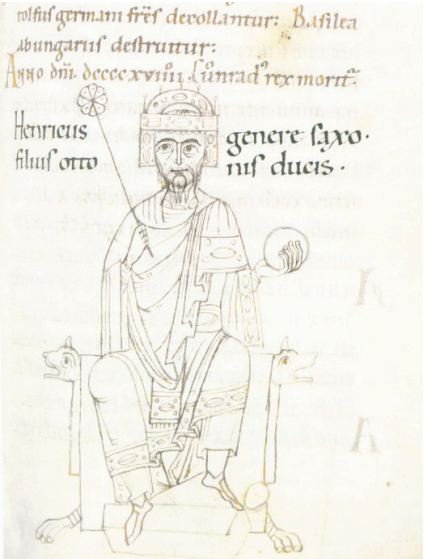 tolfus germani frēs decollantur: Basilea
ab ungariis destruitur:
Anno dni. dccccxviiii. Cunrad⁹ rex moritr̄
Henricus genere saxo·
filius otto nis ducis·